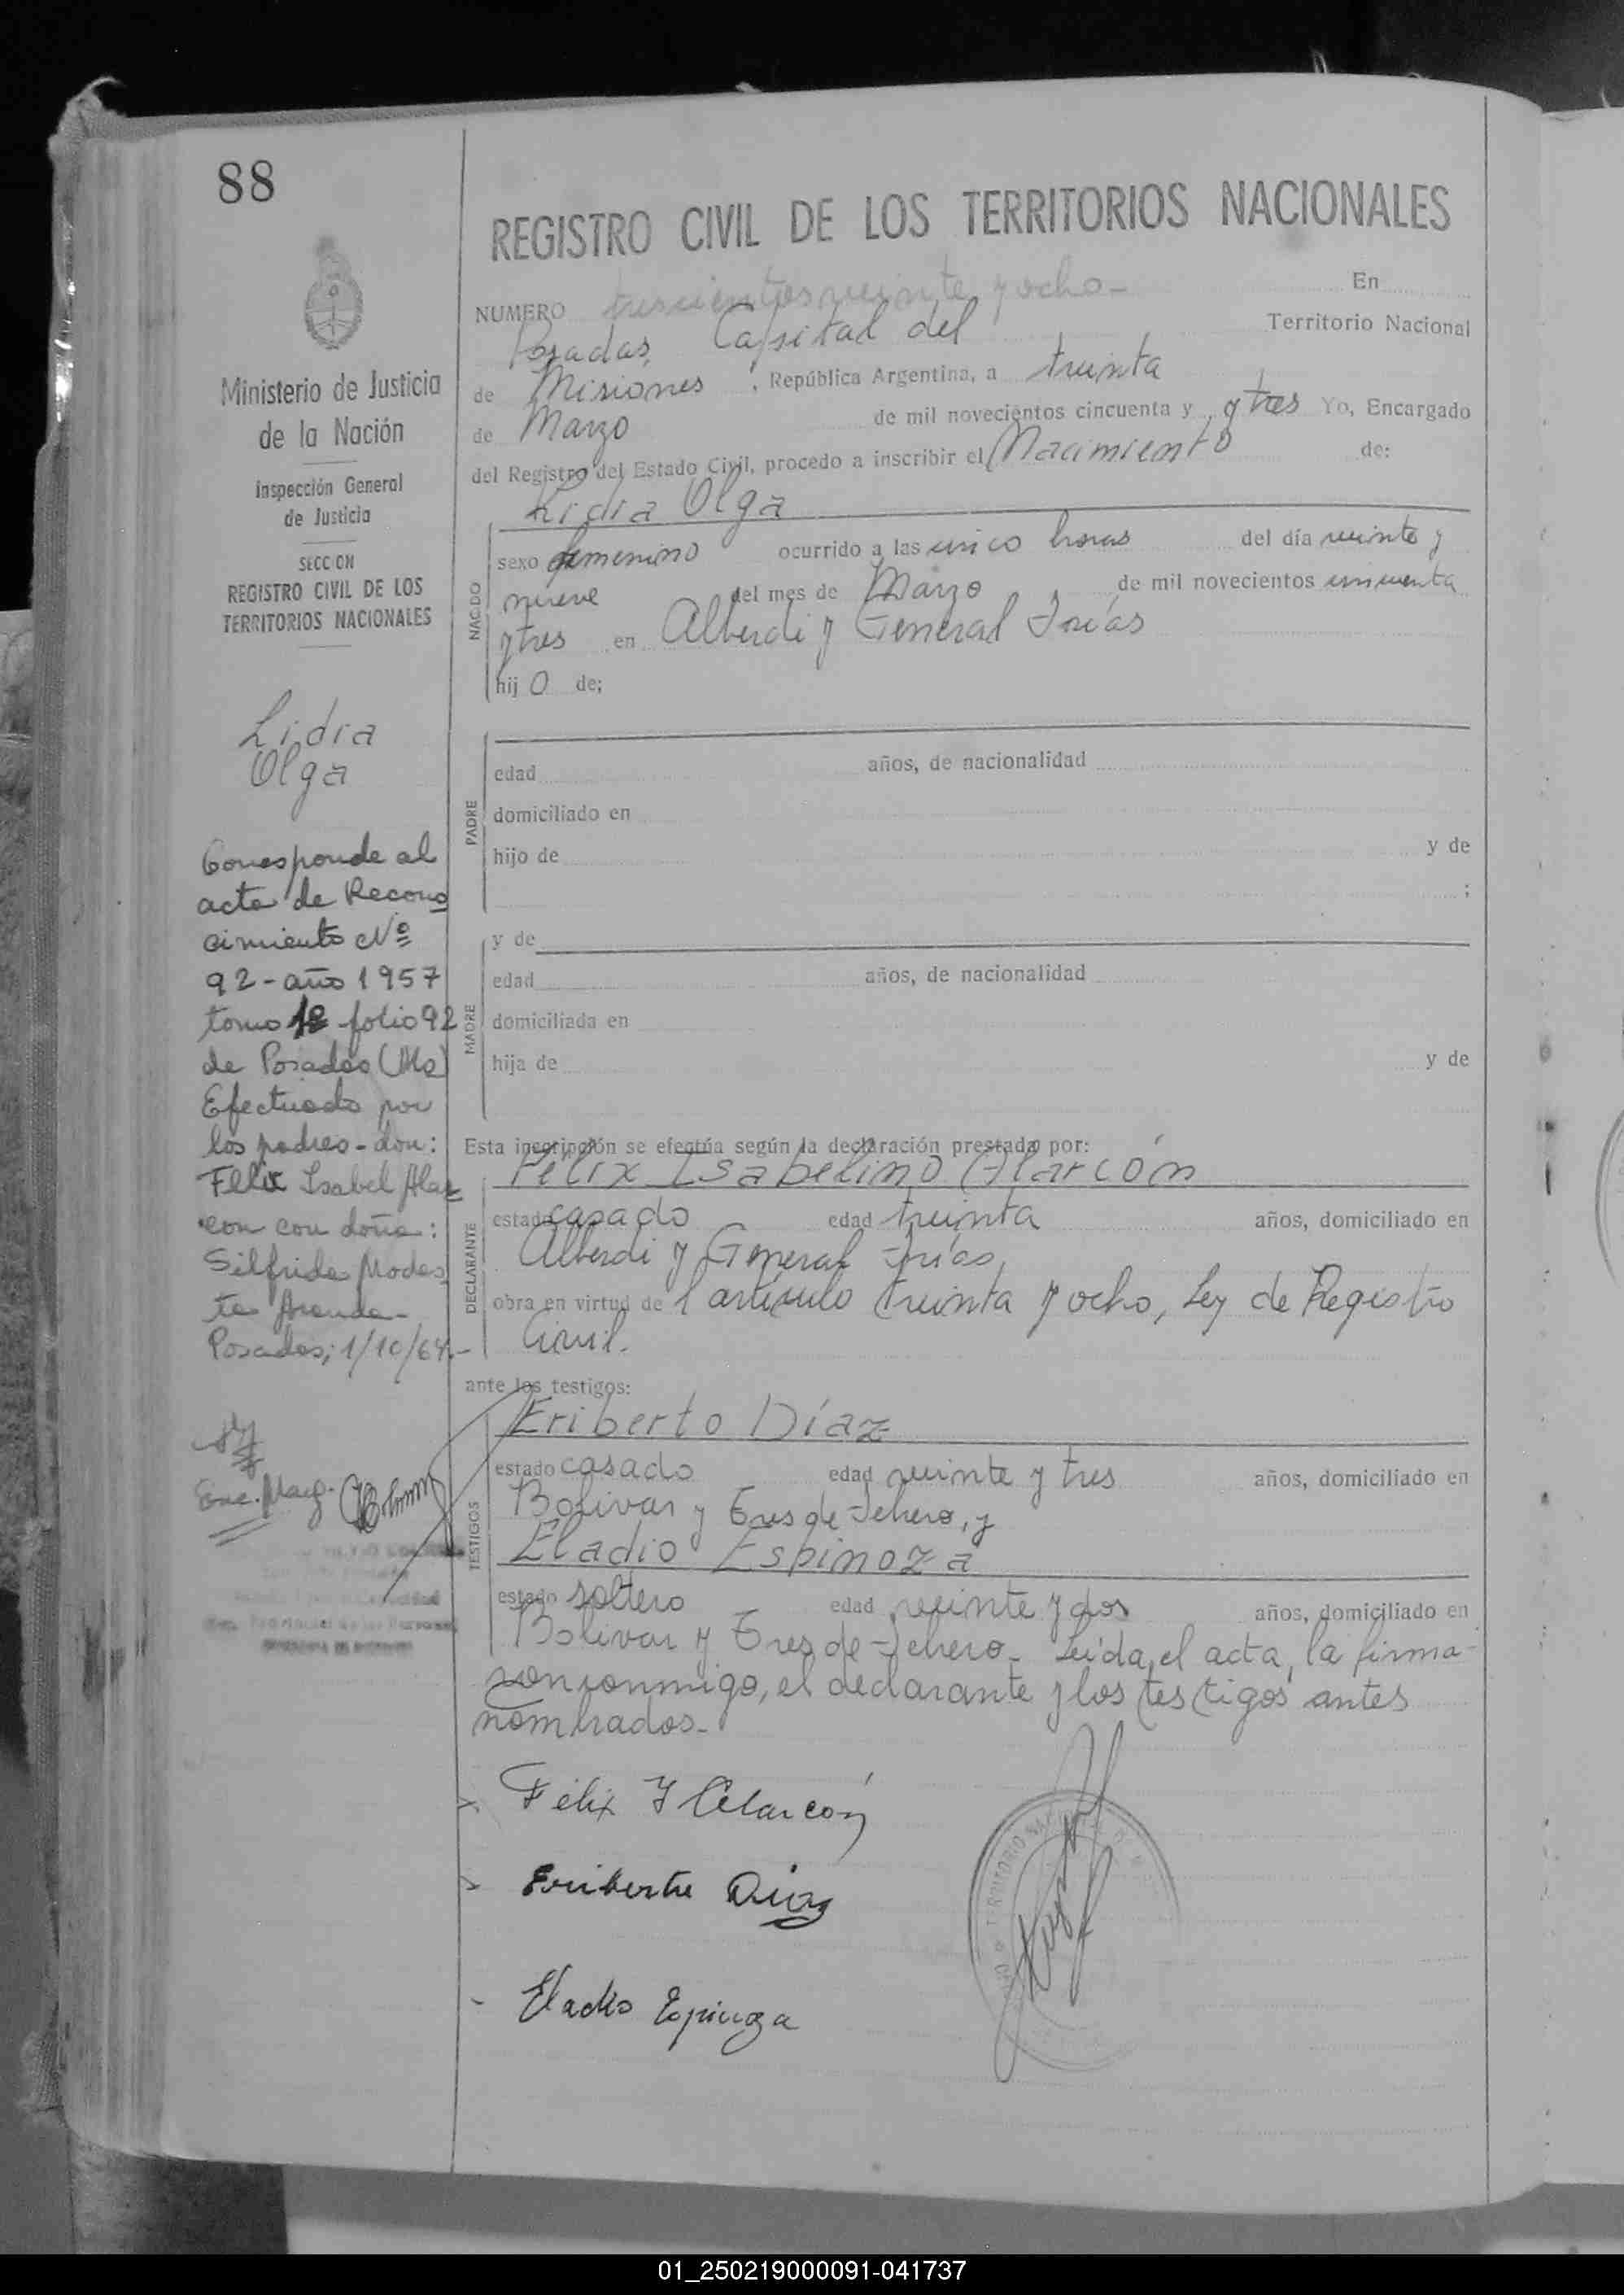 88
REGISTRO CIVIL DE LOS TERRITORIOS NACIONALES
NUMERO trescientos veinte y ocho- En
Posadas, Capital del Territorio Nacional
de Misiones, República Argentina, a treinta
de Marzo de mil novecientos cincuenta y y tres Yo, Encargado
del Registro del Estado Civil, procedo a inscribir el Nacimiento de:
Lidia Olga
NACIDO
sexo femenino ocurrido a las cinco horas del día veinte y
nueve del mes de Marzo de mil novecientos cincuenta
y tres en Alberdi y General Frías
hij o de;
PADRE
edad años, de nacionalidad
domiciliado en
hijo de y de
;
MADRE
y de
edad años, de nacionalidad
domiciliada en
hija de y de
Esta inscripción se efectúa según la declaración prestada por:
Félix Isabelino Alarcón
DECLARANTE
estado casado edad treinta años, domiciliado en
Alberdi y General Frías
obra en virtud de l artículo treinta y ocho, Ley de Registro
Civil.
ante los testigos:
Eriberto Díaz
TESTIGOS
estado casado edad veinte y tres años, domiciliado en
Bolivar y Tres de Febrero, y
Eladio Espinoza
estado soltero edad veinte y dos años, domiciliado en
Bolivar y Tres de Febrero- Leída el acta, la firma
son conmigo, el declarante y los testigos antes
nombrados-
Félix Y Alarcón
Eriberto Diaz
Eladio Espinoza
Ministerio de Justicia
de la Nación
Inspección General
de Justicia
SECCION
REGISTRO CIVIL DE LOS
TERRITORIOS NACIONALES
Lidia
Olga
Corresponde al
acta de Recono
cimiento Nº
92-año 1957
tomo 1º folio 92
de Posadas (Ms)
Efectuado por
los padres-don:
Felix Isabel Alar
con con doña:
Silfrida Modes
ta Aranda-
Posadas, 1/10/64.-
01_250219000091-041737